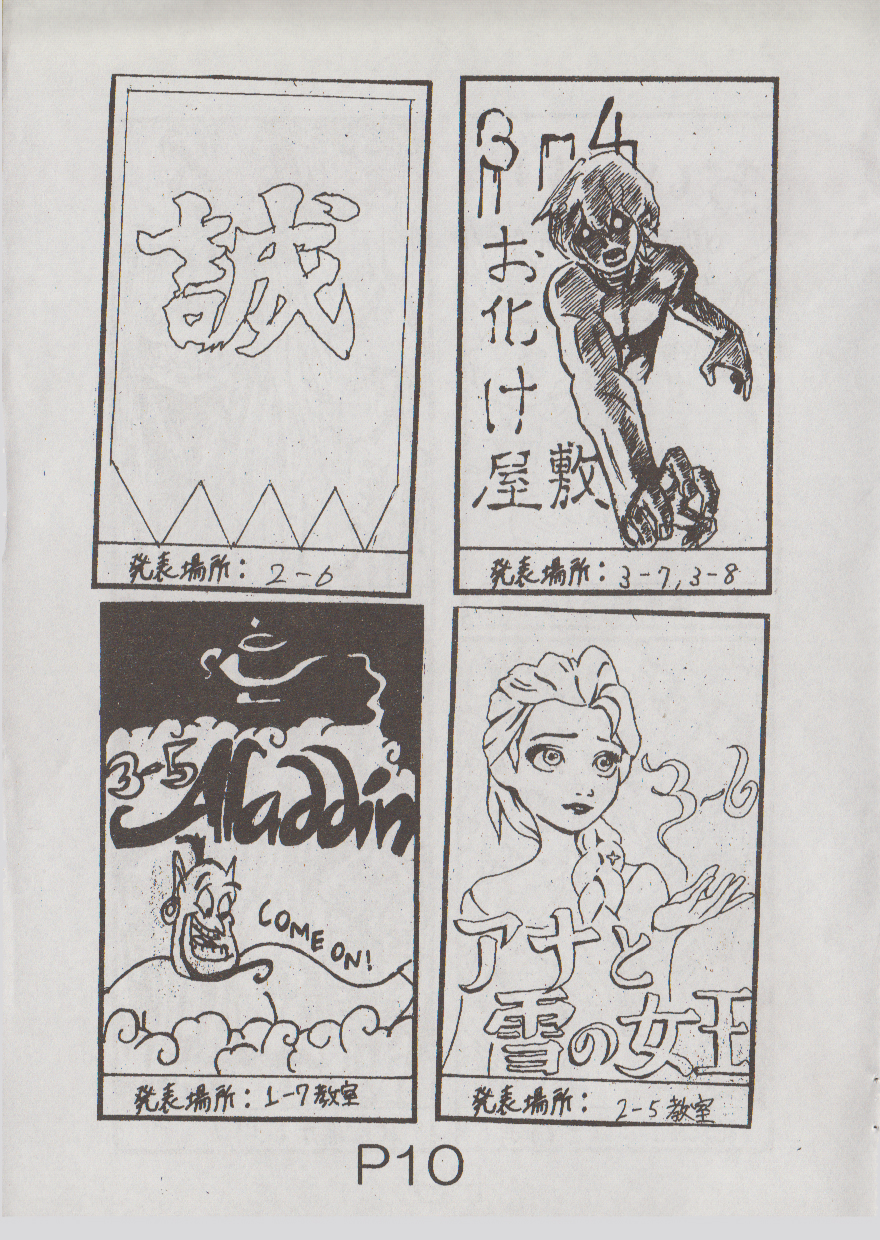 誠
発表場所： 2-6
3 4
お化け
屋敷
発表場所： 3-7, 3-8
3-5
Aladdin
COME ON!
発表場所： 1-7教室
3-6
アナと
雪の女王
発表場所： 2-5教室
P10